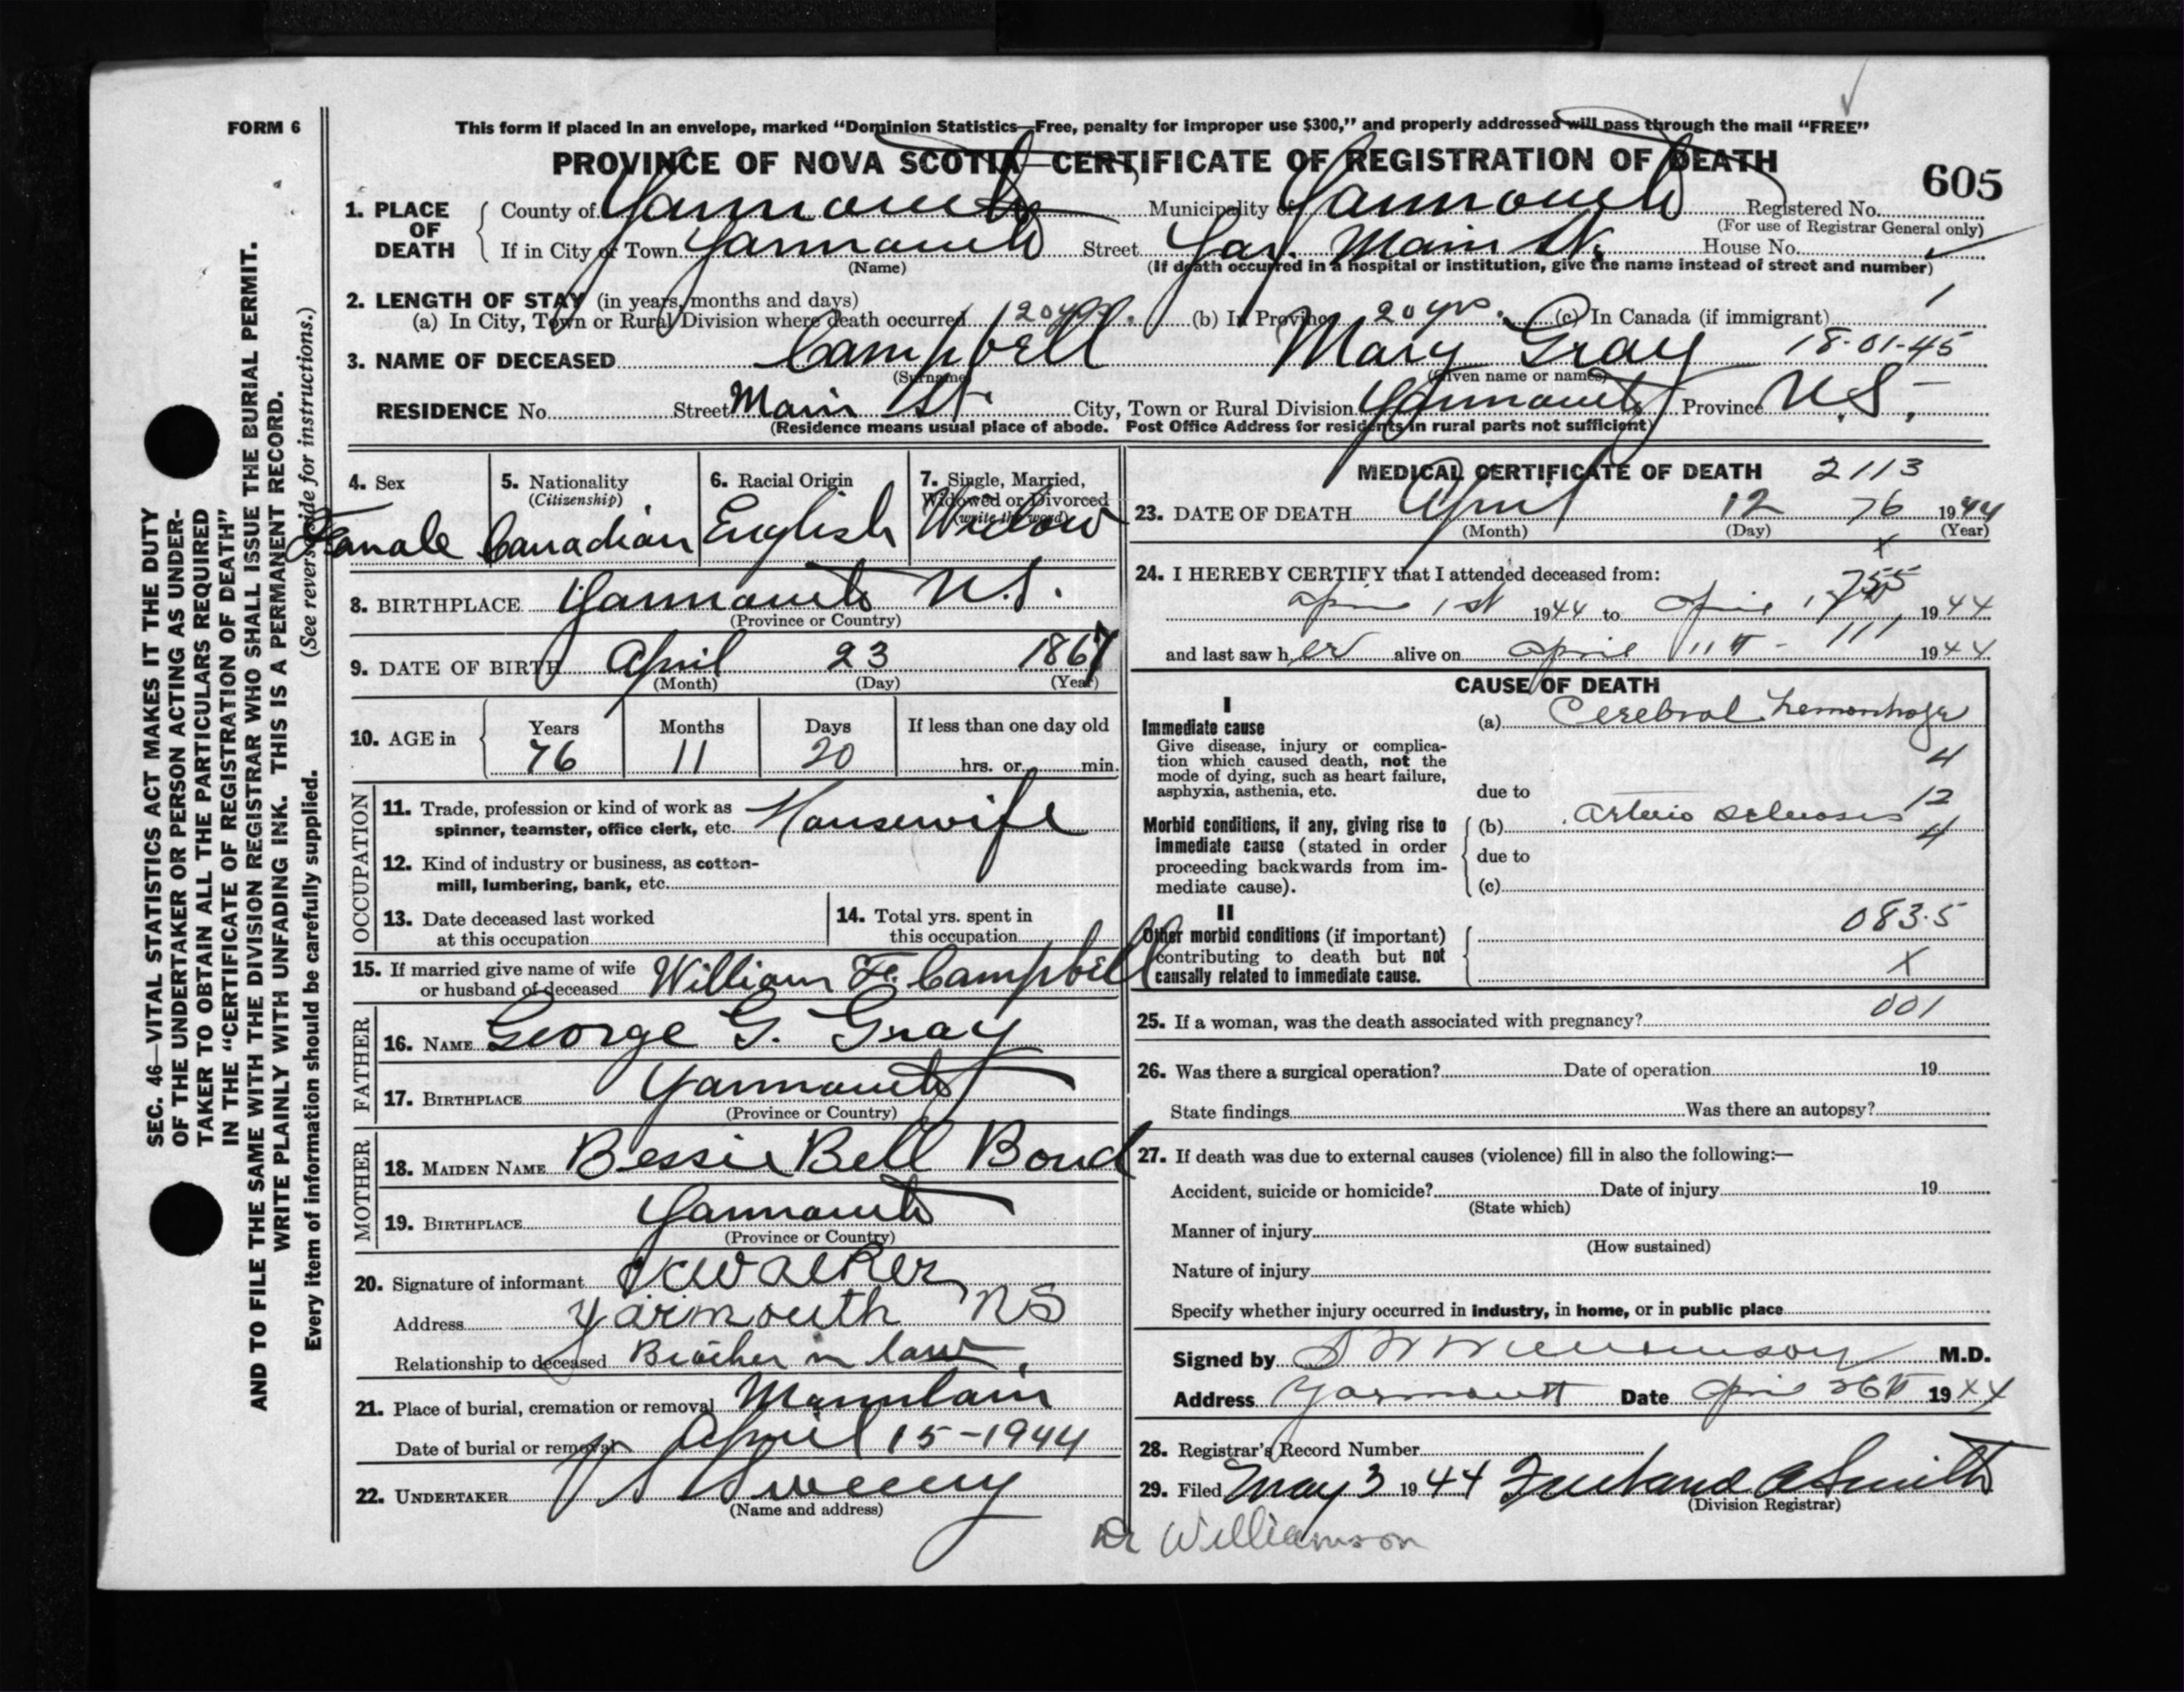 FORM 6
This form if placed in an envelope, marked "Dominion Statistics—Free, penalty for improper use $300," and properly addressed will pass through the mail "FREE"
PROVINCE OF NOVA SCOTIA—CERTIFICATE OF REGISTRATION OF DEATH
605
1. PLACE OF DEATH County of Yarmouth Municipality of Yarmouth Registered No.
(For use of Registrar General only)
If in City or Town Yarmouth Street Yar. Main St. House No.
(Name) (If death occurred in a hospital or institution, give the name instead of street and number)
2. LENGTH OF STAY (in years, months and days)
(a) In City, Town or Rural Division where death occurred 20 yrs. (b) In Province 20 yrs. (c) In Canada (if immigrant) 1
3. NAME OF DECEASED Campbell Mary Gray 18-01-45
(Surname) (Given name or names)
RESIDENCE No. Street Main St. City, Town or Rural Division Yarmouth Province N.S.
(Residence means usual place of abode. Post Office Address for residents in rural parts not sufficient)
4. Sex 5. Nationality (Citizenship) 6. Racial Origin 7. Single, Married, Widowed or Divorced (write the word)
Famale Canadian English Widow
8. BIRTHPLACE Yarmouth N.S.
(Province or Country)
9. DATE OF BIRTH April 23 1867
(Month) (Day) (Year)
10. AGE in Years Months Days If less than one day old
76 11 20 hrs. or min.
OCCUPATION
11. Trade, profession or kind of work as
spinner, teamster, office clerk, etc. Housewife
12. Kind of industry or business, as cotton-
mill, lumbering, bank, etc.
13. Date deceased last worked
at this occupation
14. Total yrs. spent in
this occupation
15. If married give name of wife
or husband of deceased William F. Campbell
FATHER
16. NAME George G. Gray
17. BIRTHPLACE Yarmouth
(Province or Country)
MOTHER
18. MAIDEN NAME Bessie Bell Bond
19. BIRTHPLACE Yarmouth
(Province or Country)
20. Signature of informant Walker
Address Yarmouth NS
Relationship to deceased Brother in law.
21. Place of burial, cremation or removal Mountain
Date of burial or removal April 15-1944
22. UNDERTAKER V S Sweeny
(Name and address)
MEDICAL CERTIFICATE OF DEATH 2113
23. DATE OF DEATH April 12 76 1944
(Month) (Day) (Year)
x
24. I HEREBY CERTIFY that I attended deceased from:
755
April 1st 1944 to April 1944
and last saw her alive on April 11th - 111 1944
CAUSE OF DEATH
I
Immediate cause
(a) Cerebral hemorrhage
Give disease, injury or complica-
tion which caused death, not the
mode of dying, such as heart failure,
asphyxia, asthenia, etc.
4
due to
12
Morbid conditions, if any, giving rise to
immediate cause (stated in order
proceeding backwards from im-
mediate cause).
(b) Arterio sclerosis 4
due to
(c)
II
083.5
Other morbid conditions (if important)
contributing to death but not
causally related to immediate cause.
X
001
25. If a woman, was the death associated with pregnancy?
26. Was there a surgical operation? Date of operation 19
State findings Was there an autopsy?
27. If death was due to external causes (violence) fill in also the following:—
Accident, suicide or homicide? Date of injury 19
(State which)
Manner of injury
(How sustained)
Nature of injury
Specify whether injury occurred in industry, in home, or in public place
Signed by Williamson M.D.
Address Yarmouth Date April 26th 1944
28. Registrar's Record Number
29. Filed May 3 1944 A Smith
(Division Registrar)
Dr Williamson
SEC. 46—VITAL STATISTICS ACT MAKES IT THE DUTY
OF THE UNDERTAKER OR PERSON ACTING AS UNDER-
TAKER TO OBTAIN ALL THE PARTICULARS REQUIRED
IN THE "CERTIFICATE OF REGISTRATION OF DEATH"
AND TO FILE THE SAME WITH THE DIVISION REGISTRAR WHO SHALL ISSUE THE BURIAL PERMIT.
WRITE PLAINLY WITH UNFADING INK. THIS IS A PERMANENT RECORD.
Every item of information should be carefully supplied. (See reverse side for instructions.)